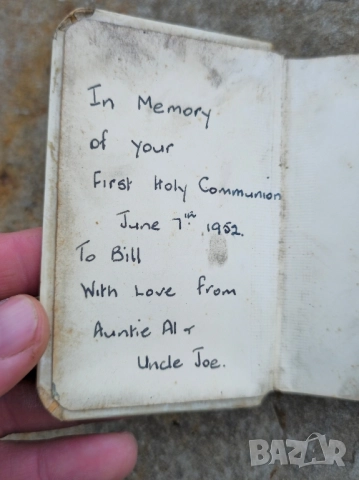 In Memory
of your
First Holy Communion
June 7th 1952.
To Bill
With Love from
Auntie Al &
Uncle Joe.
BAZAR
bg